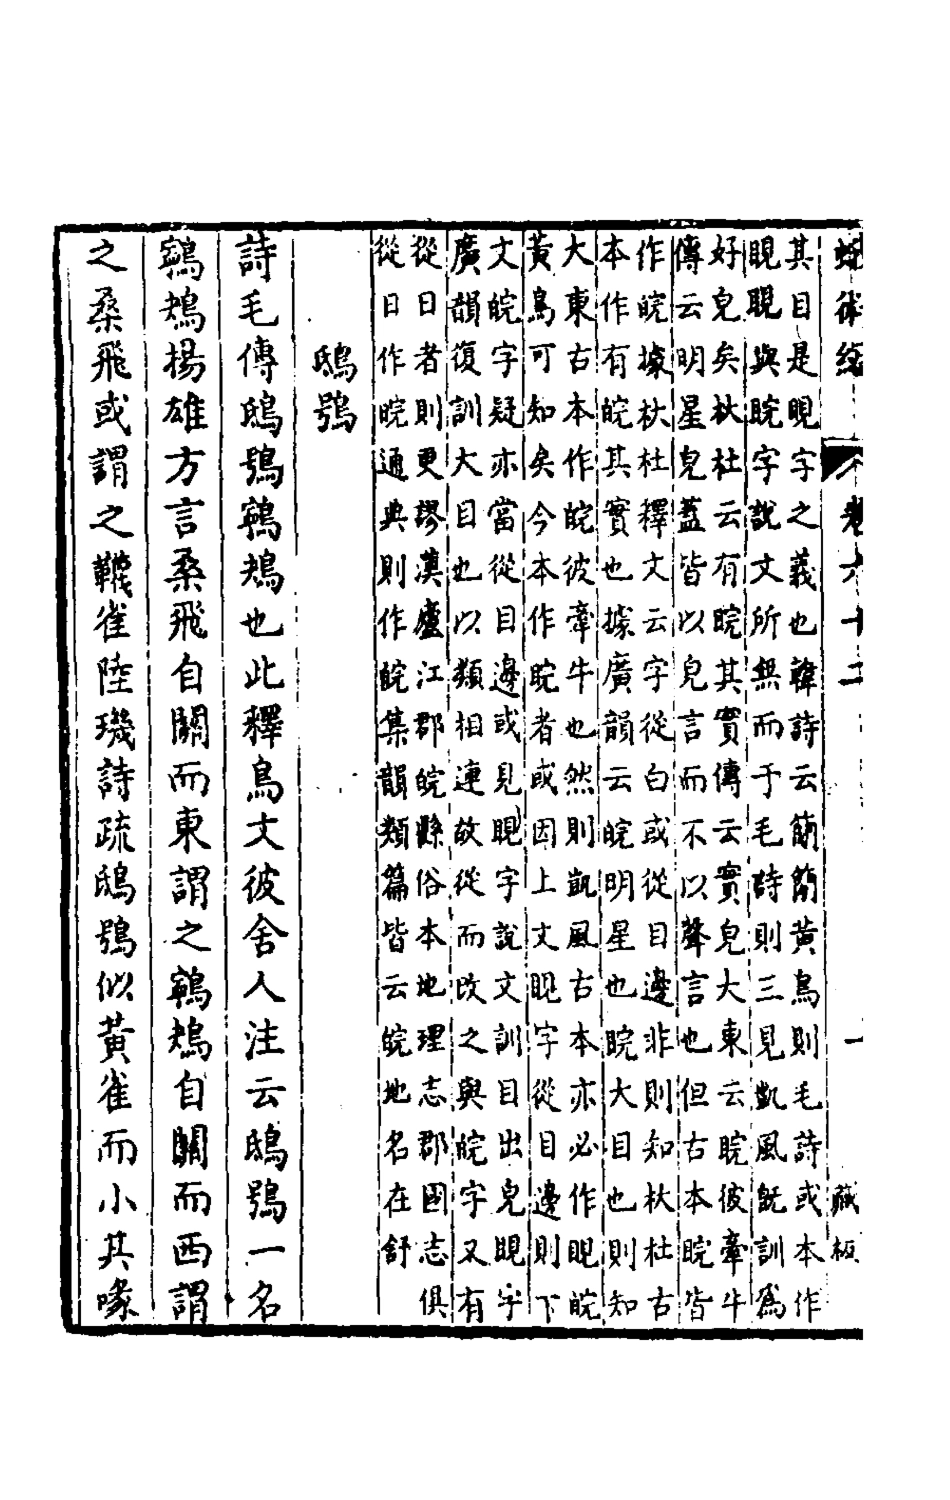 蛾術編 卷六十二 一 藏板
其目是睍字之義也韓詩云簡簡黃鳥則毛詩或本作
睍睍與睆字說文所無而于毛詩則三見凱風旣訓爲
好皃矣杕杜云有睆其實傳云實皃大東云睆彼牽牛
傳云明星皃蓋皆以皃言而不以聲言也但古本睆皆
作皖據杕杜釋文云字從白或從目邊非則知杕杜古
本作有皖其實也據廣韻云皖明星也睆大目也則知
大東古本作皖彼牽牛也然則凱風古本亦必作睍皖
黃鳥可知矣今本作睆者或因上文睍字從目邊則下
文皖字疑亦當從目邊或見睍字說文訓目出皃睍字
廣韻復訓大目也以類相連故從而改之與皖字又有
從日者則更謬漢廬江郡皖縣俗本地理志郡國志俱
從日作晥通典則作皖集韻類篇皆云皖地名在舒
鴟鴞
詩毛傳鴟鴞鸋鴂也此釋鳥文彼舍人注云鴟鴞一名
鸋鴂揚雄方言桑飛自關而東謂之鸋鴂自關而西謂
之桑飛或謂之韈雀陸璣詩疏鴟鴞似黃雀而小其喙